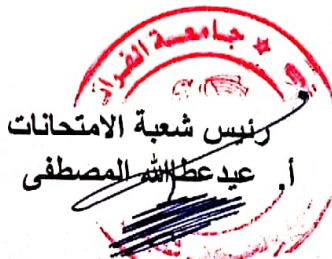 جامعة الفرات
رئيس شعبة الامتحانات
أ. عيد عطاالله المصطفى